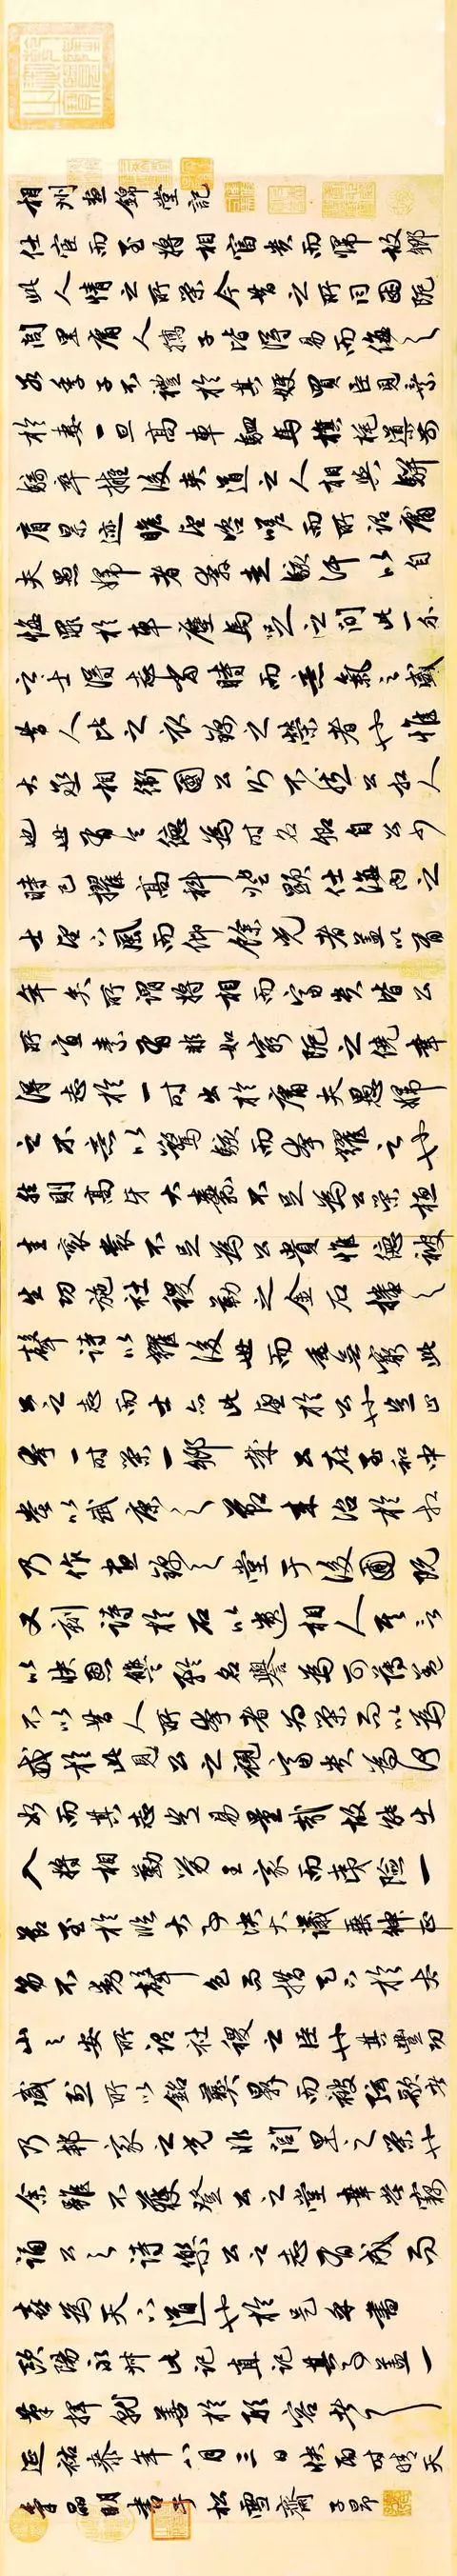 相州晝錦堂記
仕宦而至將相富貴而歸故鄉
此人情之所榮今昔之所同困阨
閭里庸人孺子皆得易而侮之
若季子不禮於其嫂買臣見棄
於妻一旦高車駟馬旗旄導前
騎卒擁後夾道之人相與駢
肩累迹瞻望咨嗟而所謂庸
夫愚婦者奔走駭汗以自
悔罪於車塵馬足之間此一介
之士得志當時而意氣之盛
昔人比之衣錦之榮者也惟
大丞相衛國公則不然公相人
也世有令德為時名卿自公少
時已擢高科登顯仕海內之
士望下風而仰餘光者蓋以有
年矣所謂將相而富貴皆公
所宜素有非如窮阨之僥幸
得志於一時出於庸夫愚婦
之不意以驚駭而夸耀之也
然則高牙大纛不足為公榮桓
圭袞裳不足為公貴惟德被
生功施社稷勒之金石播之
聲詩以耀後世而垂無窮此
公之志而士亦此望於公也豈止
夸一時榮一鄉哉公在至和中
嘗以武康之節來治於相
乃作晝錦之堂于後圃既
又刻詩於石以遺相人其言
以快恩讎矜名譽為可薄蓋
不以昔人所夸者為榮而以為
戒於此見公之視富貴為何
如而其志豈易量哉故能出
入將相勤勞王家而夷險一
節至於臨大事決大議垂紳正
笏不動聲色而措天下於泰
山之安所謂社稷之臣也其豐功
盛烈所以銘彝鼎而被弦歌者
乃邦家之光非閭里之榮也
余雖不獲登公之堂幸嘗竊
誦公之詩樂公之志有成而
喜為天下道也於是乎書
歐陽永叔此記直記其事蓋一
筆揮就善於形容者
延祐泰年八月三日快雨時晴天
氣晶明書于松雪齋 子昂